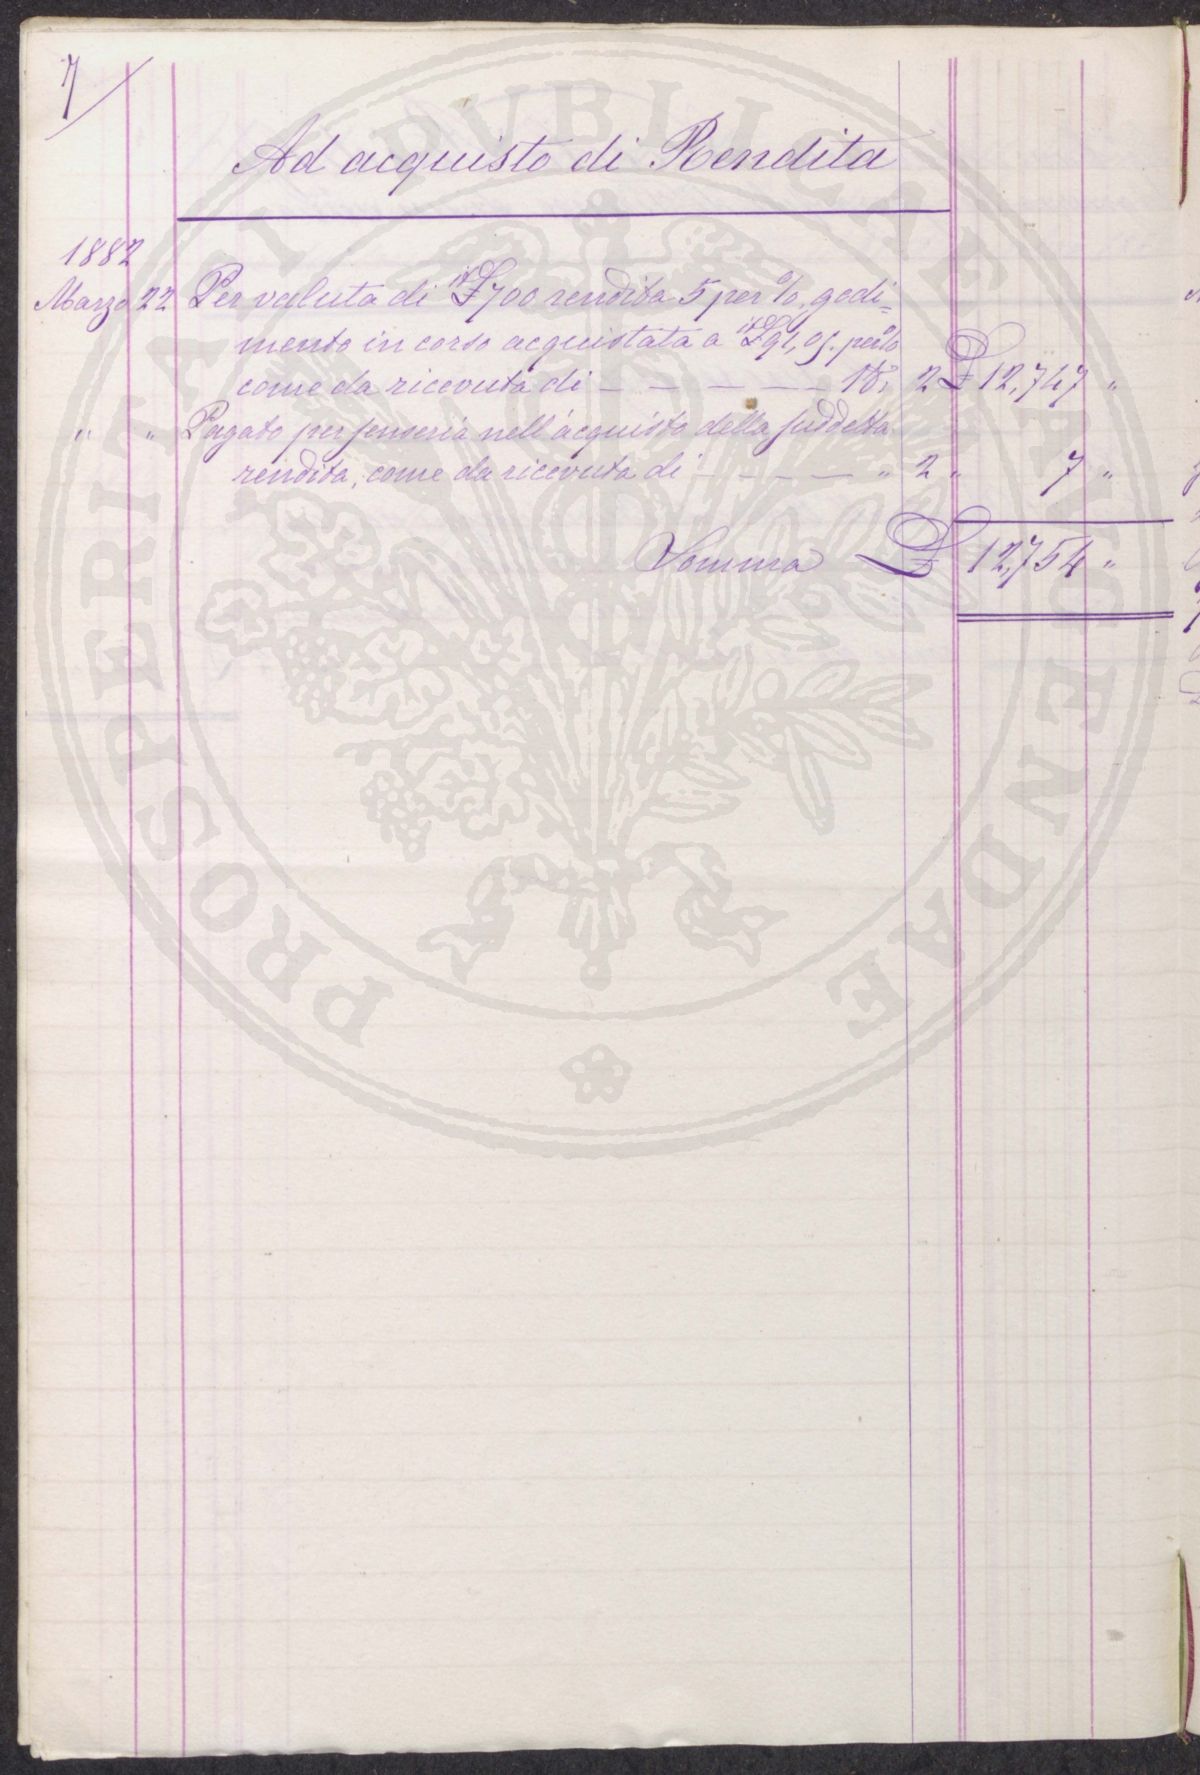 7
Ad acquisto di Rendita
1882
Marzo 22 Per valuta di it £ 700 rendita 5 per %, godi=
mento in corso acquistata a it £ 91,05 per %
come da ricevuta di — — — — — — 2 £ 12,747 "
" " Pagato per senseria nell'acquisto della suddetta
rendita, come da ricevuta di — — — — " 2 " 7 "
Somma £ 12,754 "
PROSPERITATI PUBLICAE AVGENDAE